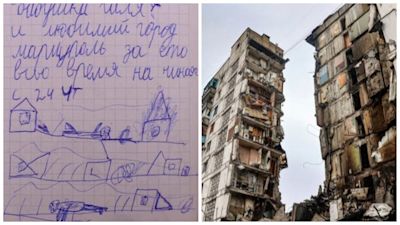 бабушка галя
и любимий город
мариуполь за ето
все время на чиная
с 24 чт